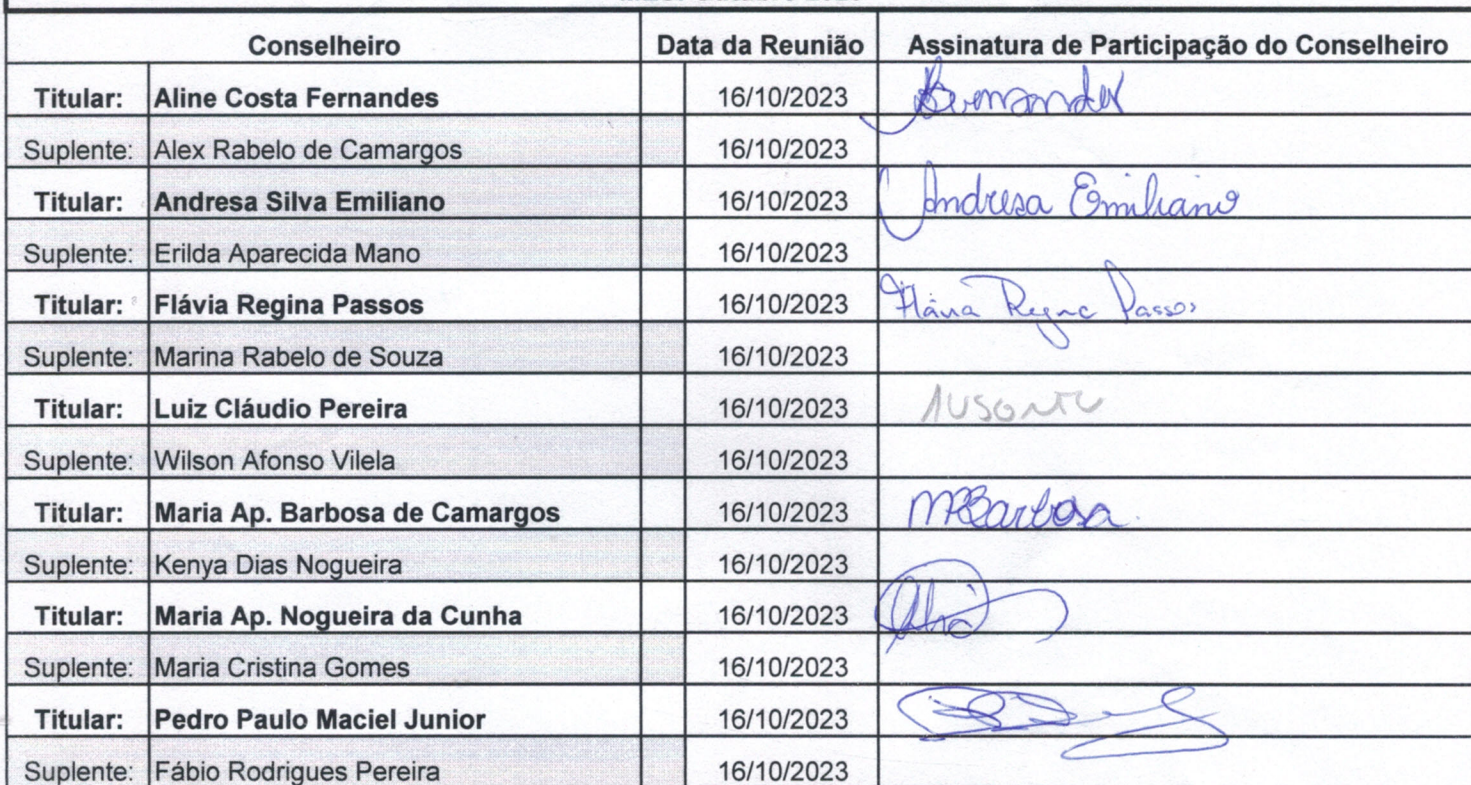 Conselheiro Data da Reunião Assinatura de Participação do Conselheiro
Titular: Aline Costa Fernandes 16/10/2023
Suplente: Alex Rabelo de Camargos 16/10/2023
Titular: Andresa Silva Emiliano 16/10/2023 Andresa Emiliano
Suplente: Erilda Aparecida Mano 16/10/2023
Titular: Flávia Regina Passos 16/10/2023 Flávia Regina Passos
Suplente: Marina Rabelo de Souza 16/10/2023
Titular: Luiz Cláudio Pereira 16/10/2023 AUSENTE
Suplente: Wilson Afonso Vilela 16/10/2023
Titular: Maria Ap. Barbosa de Camargos 16/10/2023 MABarbosa
Suplente: Kenya Dias Nogueira 16/10/2023
Titular: Maria Ap. Nogueira da Cunha 16/10/2023
Suplente: Maria Cristina Gomes 16/10/2023
Titular: Pedro Paulo Maciel Junior 16/10/2023
Suplente: Fábio Rodrigues Pereira 16/10/2023